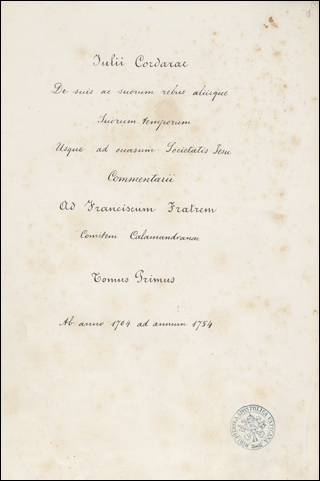 Iulii Cordarae
De suis ac suorum rebus aliisque
Suorum temporum
Usque ad occasum Societatis Iesu
Commentarii
Ad Franciscum Fratrem
Comitem Calamandranae
Tomus Primus
Ab anno 1704 ad annum 1754
BIBLIOTHECA APOSTOLICA VATICANA